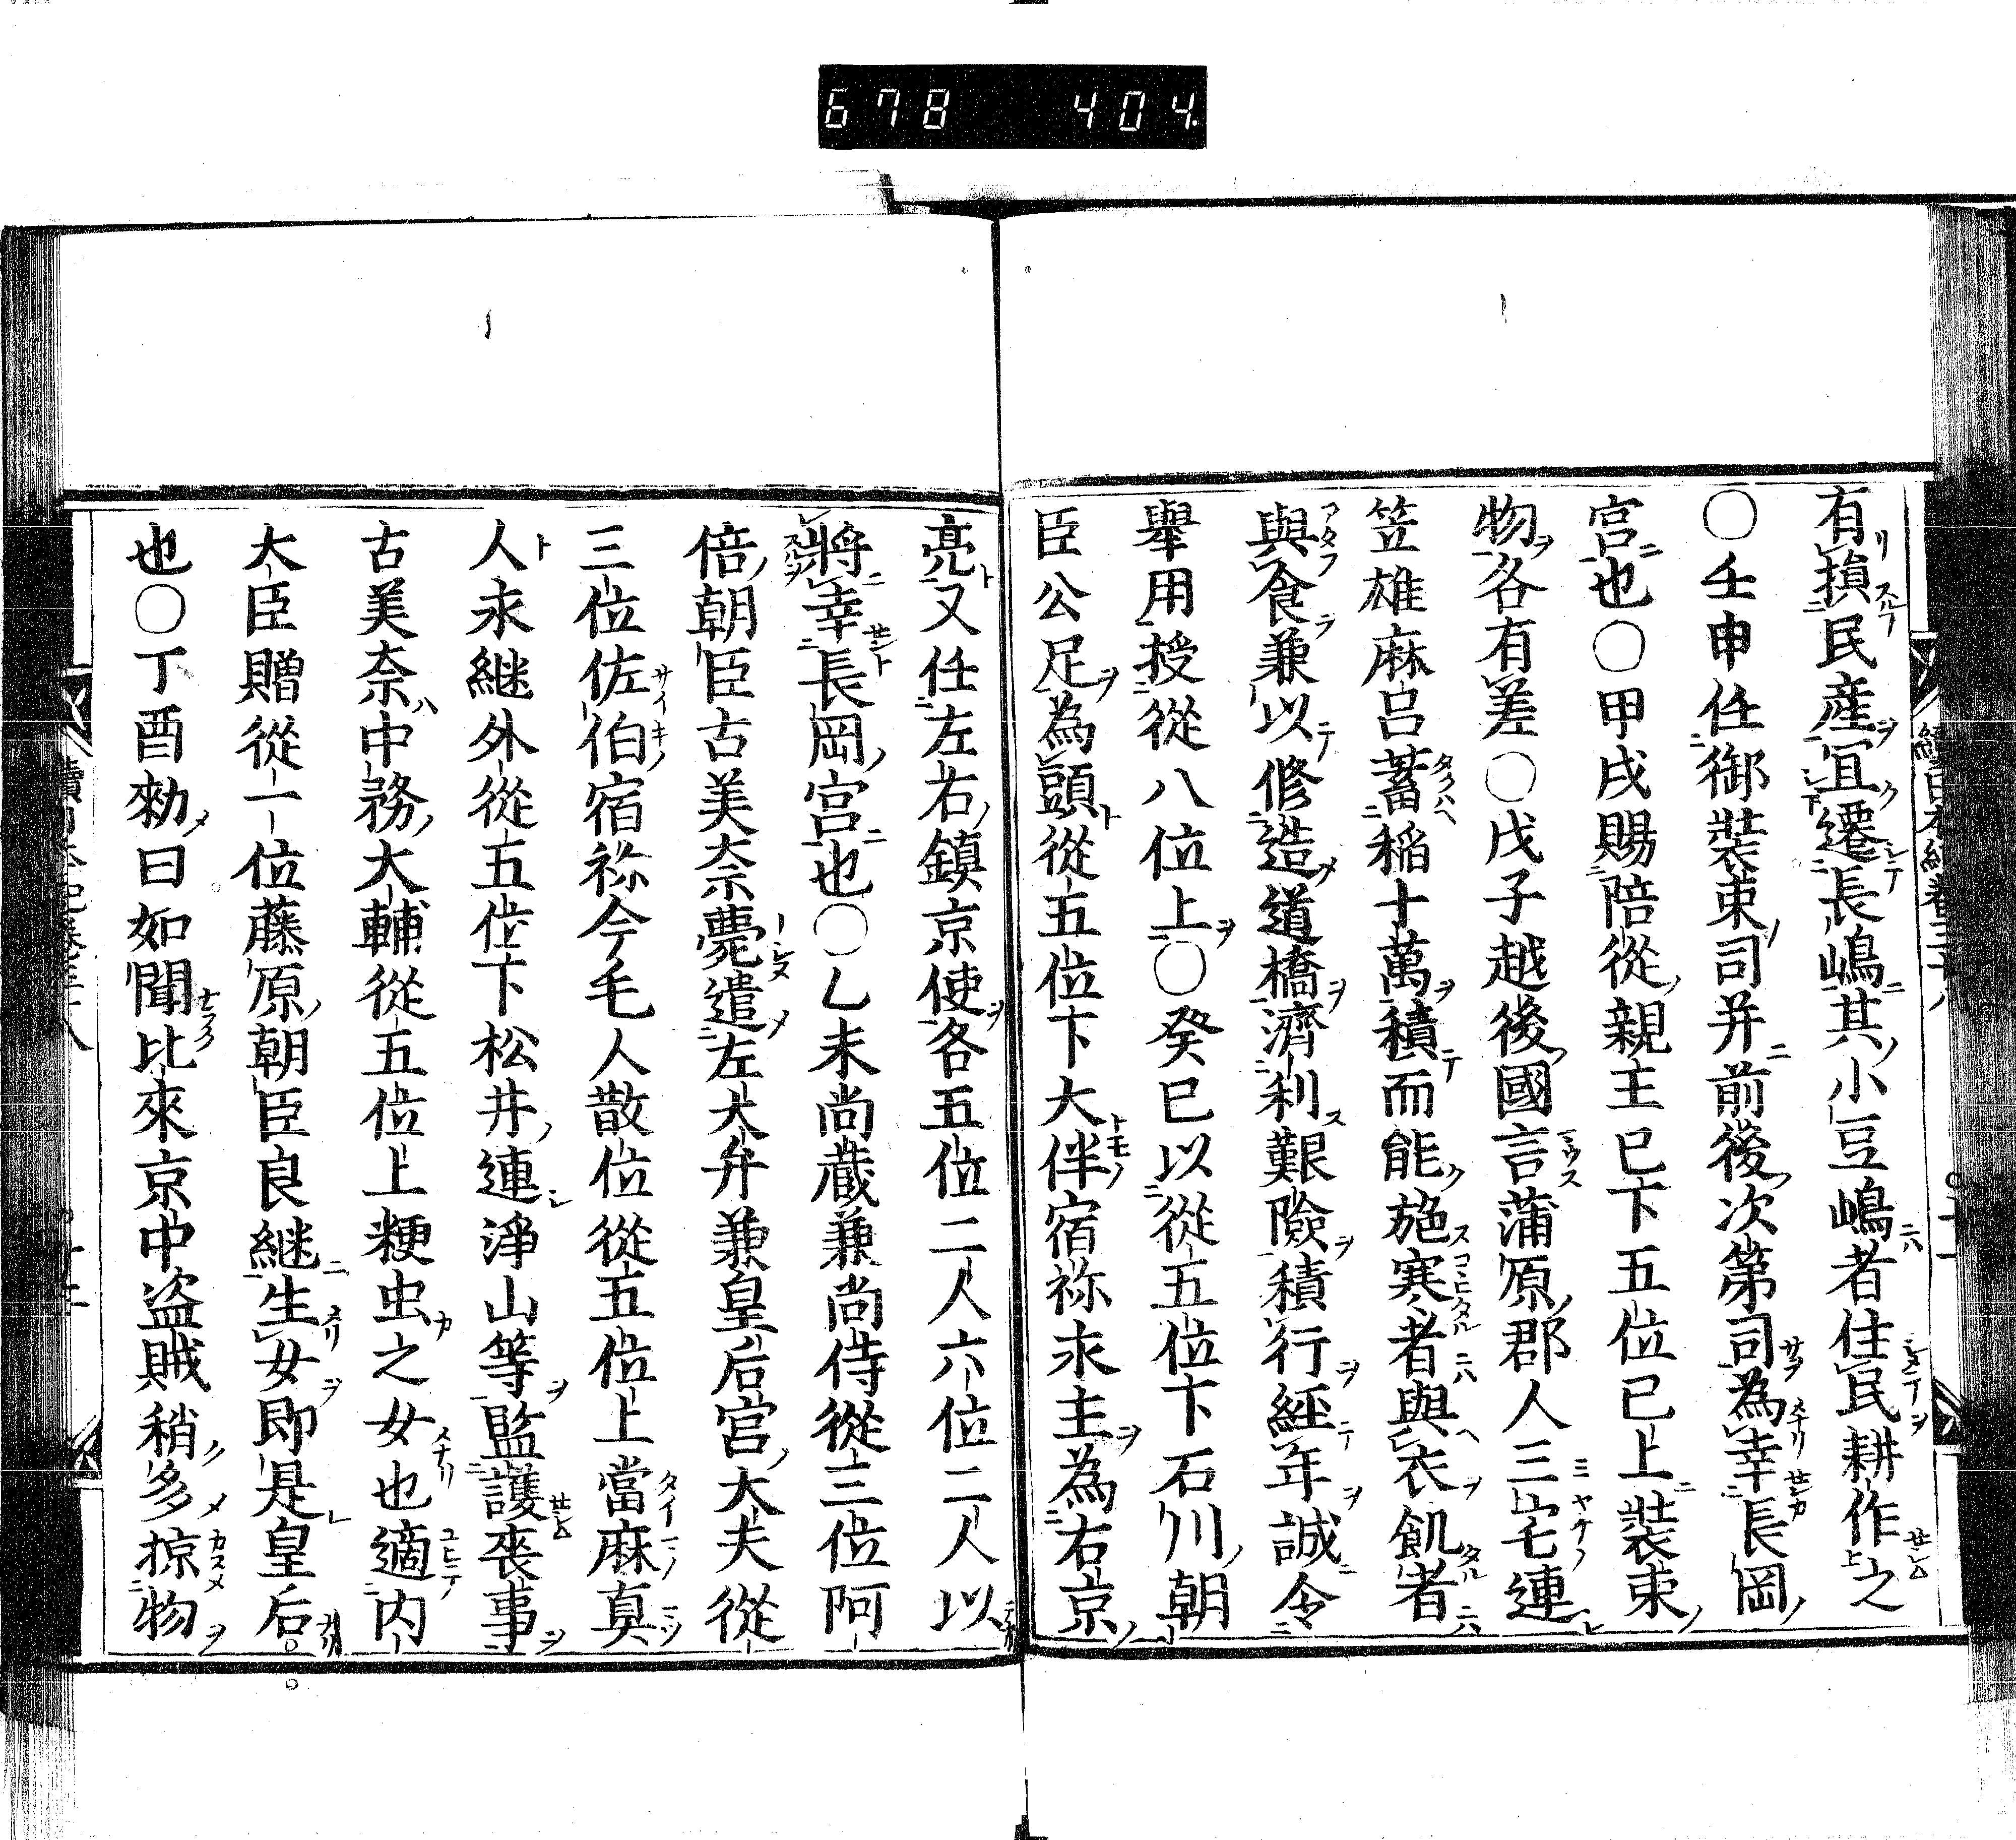 678 404
有損民産宜遷長嶋其小豆嶋者住民耕作之
〇壬申任御裝束司并前後次第司為幸長岡
宮也〇甲戌賜陪從親王已下五位已上裝束
物各有差〇戊子越後國言蒲原郡人三宅連
笠雄麻呂蓄稲十萬積而能施寒者與衣飢者
與食兼以修造道橋濟利艱險積行經年誠令
舉用授從八位上〇癸巳以從五位下石川朝
臣公足為頭從五位下大伴宿祢永主為右京
亮又任左右鎮京使各五位二人六位二人以
將幸長岡宮也〇乙未尚蔵兼尚侍從三位阿
倍朝臣古美奈薨遣左大弁兼皇后宮大夫從
三位佐伯宿祢今毛人散位從五位上當麻真
人永継外從五位下松井連淨山等監護喪事
古美奈中務大輔從五位上粳虫之女也適内
大臣贈從一位藤原朝臣良継生女即是皇后
也〇丁酉勑曰如聞比來京中盗賊稍多掠物